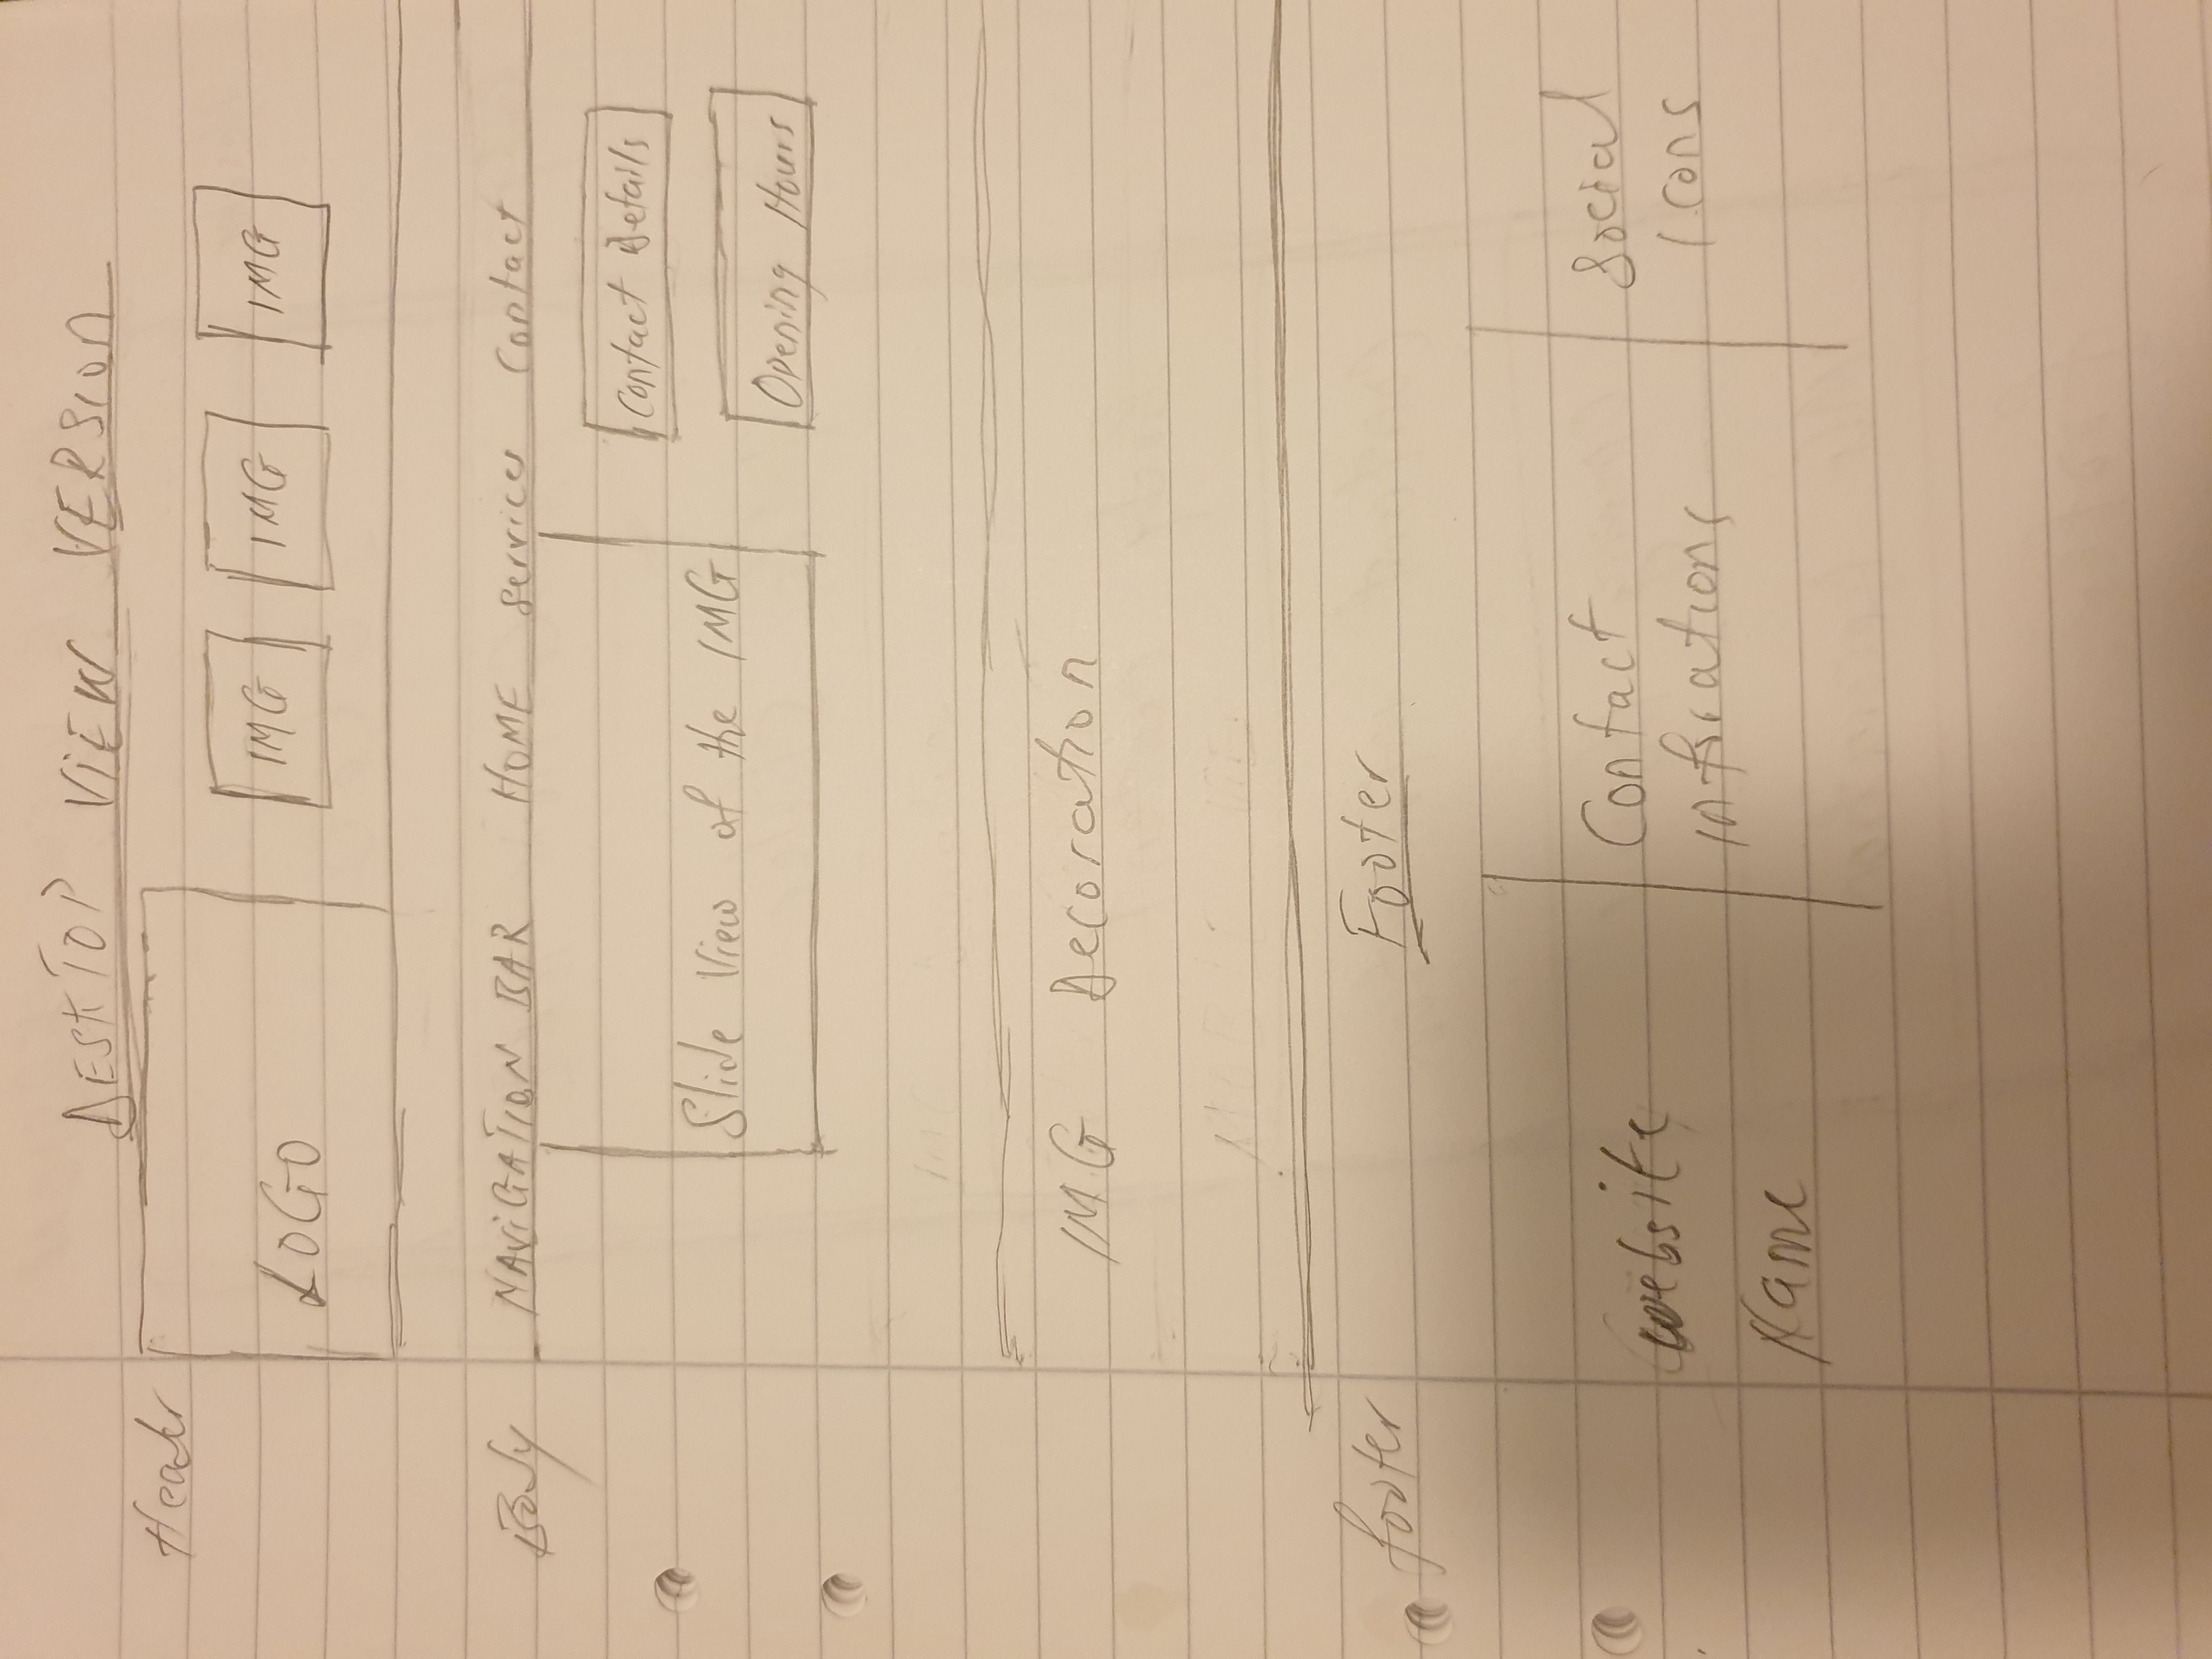 DESKTOP VIEW VERSION
Header
LOGO IMG IMG IMG
Body NAViGATION BAR HOME services Contact
Contact Details
Slide View of the IMG
Opening Hours
IMG Decoration
footer Footer
website
Name
Contact
infirations
Social
Icons